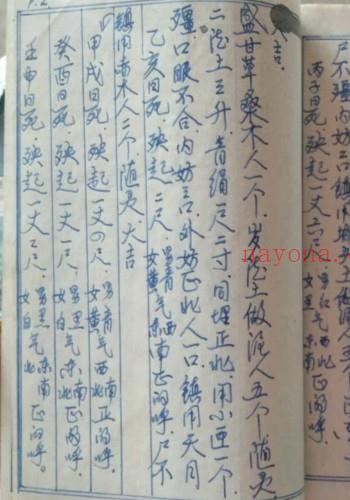 大吉
盛甘草桑木人一个,岁德土做泥人五个随灵
二德土三升,青绢一尺二寸,同埋正北用小匣一个
殭口眼不合,内妨三口,外妨正北人一口,镇用天月
乙亥日死,殃起二尺,男青气西 女黄气东南 正的呼,尸不
镇用南木人二个随灵大吉
甲戌日死,殃起一丈四尺,男青气西南 女黄气西北 正的呼,
癸酉日死,殃起一丈一尺,男黑气东南 女白气东北 正的呼,
壬申日死,殃起一丈二尺,男黑气东南 女白气北 正的呼。
丙子日死,殃起一丈六尺,男红气西南
nayona.cn